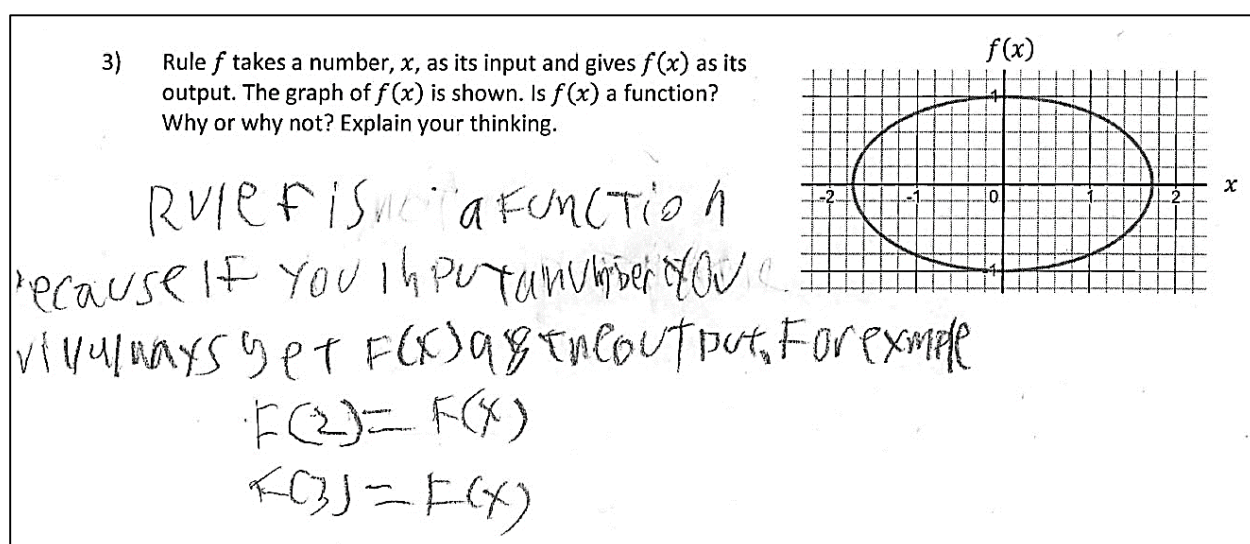 3) Rule f takes a number, x, as its input and gives f(x) as its
output. The graph of f(x) is shown. Is f(x) a function?
Why or why not? Explain your thinking.
f(x)
1
-2 -1 0 1 2
x
-1
Rule f is a function
because if you input a number you
will always get F(x) as the output. For exmple
F(2) = F(x)
F(3) = F(x)